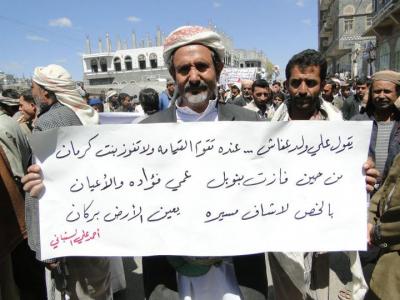 يقول علي ولد عفاش ... عنده تقوم القيامه ولا تفوز بنت كرمان
من حين فازت بنوبل عمي فؤاده والأعيان
بالخص لاشاف مسيره يعين الأرض بركان
أحمد علي السنباني